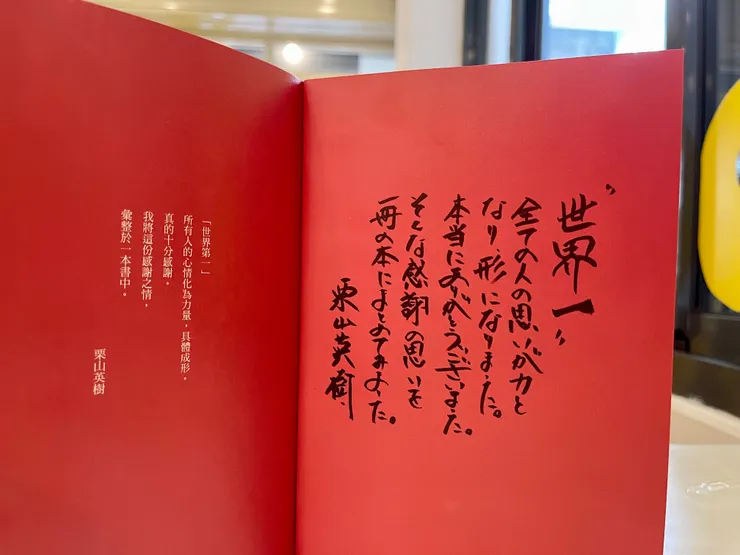 〝世界一〟
全ての人の思いが力と
なり、形になりました。
本当にありがとうございました。
そんな感謝の思いを
一冊の本にまとめてみました。
栗山英樹
「世界第一」
所有人的心情化為力量，具體成形，
真的十分感謝。
我將這份感謝之情，
彙整於一本書中。
栗山英樹